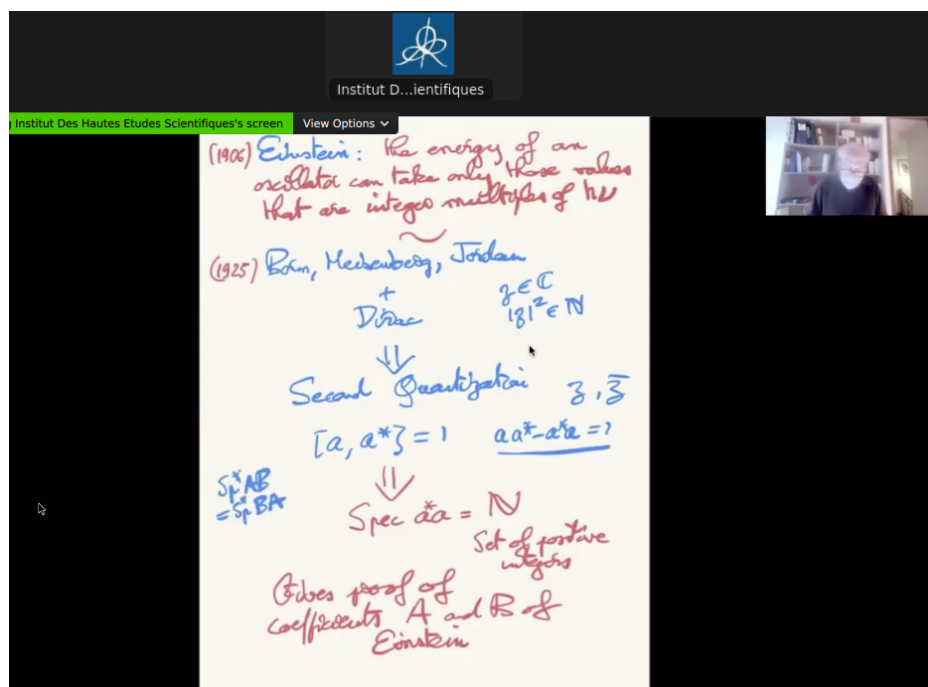 Institut D...ientifiques
Institut Des Hautes Etudes Scientifiques's screen
View Options
(1906) Einstein: the energy of an
oscillator can take only those values
that are integer multiples of hν
(1925) Born, Heisenberg, Jordan
+
Dirac
z ∈ ℂ
|z|² ∈ ℕ
⇓
Second Quantization
z, z̄
[a, a*] = 1
aa* - a*a = 1
Sp*AB
= Sp*BA
⇓
Spec a*a = ℕ
Set of positive
integers
Gives proof of
coefficients A and B of
Einstein